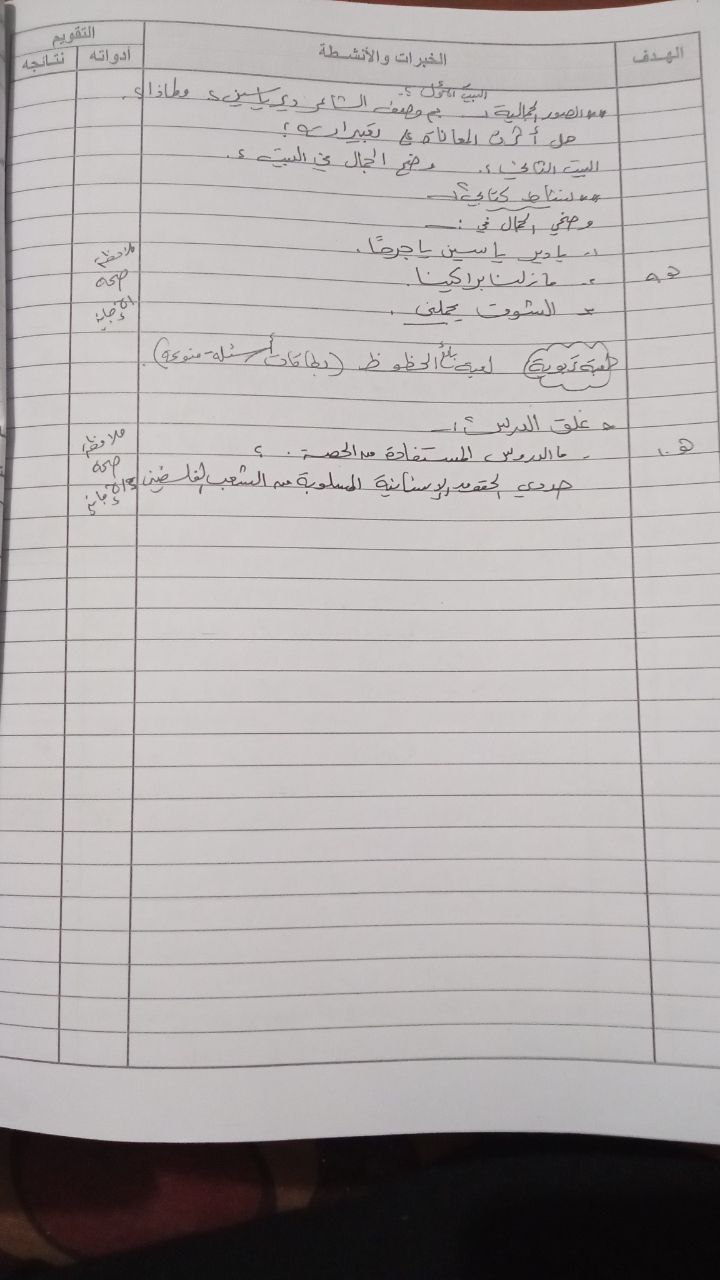 الهدف الخبرات والأنشطة التقويم
أدواته نتائجه
البيت الأول :
** الصور الجمالية :- بم وصف الشاعر دير ياسين؟ ولماذا؟
هل أثرت المعاناة في تعبيراته؟
البيت الثاني :. وضح الجمال في البيت ؟.
** نشاط كتابي :-
وضحي الجمال في :-
١- يا دير ياسين يا جرحًا. ملاحظة
هـ٩ ٢- ما زلنا براكينا. صحة
* الشوق يحملني. الإجابة
لعبة تربوية لعبة الحظوظ (بطاقات أسئلة متنوعة).
* غلق الدرس :-
هـ١٠ - ما الدروس المستفادة من الحصة . ؟ ملاحظة
صحة
حددي الحقوق الإنسانية المسلوبة من الشعب الفلسطيني
الإجابة